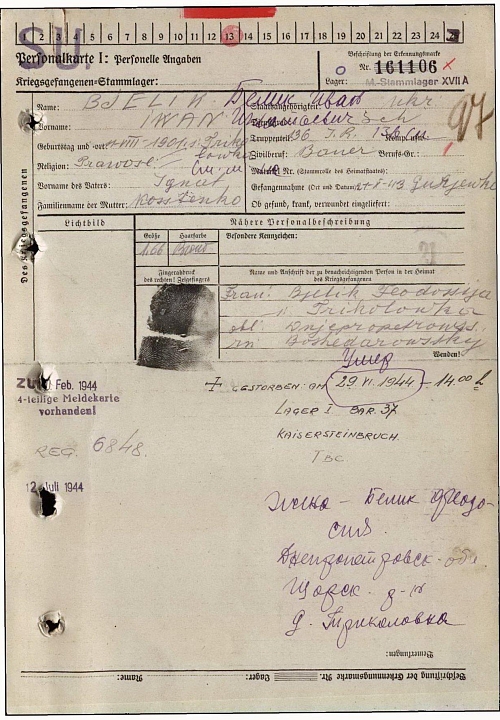 SU.
1 2 3 4 5 6 7 8 9 10 11 12 13 14 15 16 17 18 19 20 21 22 23 24 25
Personalkarte I: Personelle Angaben
Kriegsgefangenen-Stammlager:
Beschriftung der Erkennungsmarke
Nr. 161106 x
Lager: M.-Stammlager XVII A
Des Kriegsgefangenen
Name: BJELIK Белик Иван
Staatsangehörigkeit: ukr.
Vorname: IWAN Игнатьевич
Truppenteil: 96 J.R. Komp. usw.:
Geburtstag und -ort: 1901
Zivilberuf: Bauer Berufs-Gr.:
Religion: Prawosl.
Matrikel Nr. (Stammrolle des Heimatstaates):
Vorname des Vaters: Ignat
Gefangennahme (Ort und Datum):
Familienname der Mutter: Kosstenko
Ob gesund, krank, verwundet eingeliefert:
Lichtbild
Nähere Personalbeschreibung
Größe Haarfarbe Besondere Kennzeichen:
1.66
Fingerabdruck
des rechten! Zeigefingers
Name und Anschrift der zu benachrichtigenden Person in der Heimat
des Kriegsgefangenen
Frau: Bjelik Feodosija
Trikolowka
obl. Dnjepropetrowsk
rn Boshedarowskij
Wenden!
Умер
+ GESTORBEN: AM 29 VI. 1944 – 14.00 h
LAGER I BAR. 37
KAISERSTEINBRUCH
TBC
Feb. 1944
4-teilige Meldekarte
vorhanden!
REG. 6848.
12. Juli 1944
Жена – Белик Феодо-
сия
Днепропетровск. обл.
Щорск. р-н
д. Триколовка
Bemerkungen:
Beschriftung der Erkennungsmarke Nr. Lager: Name: